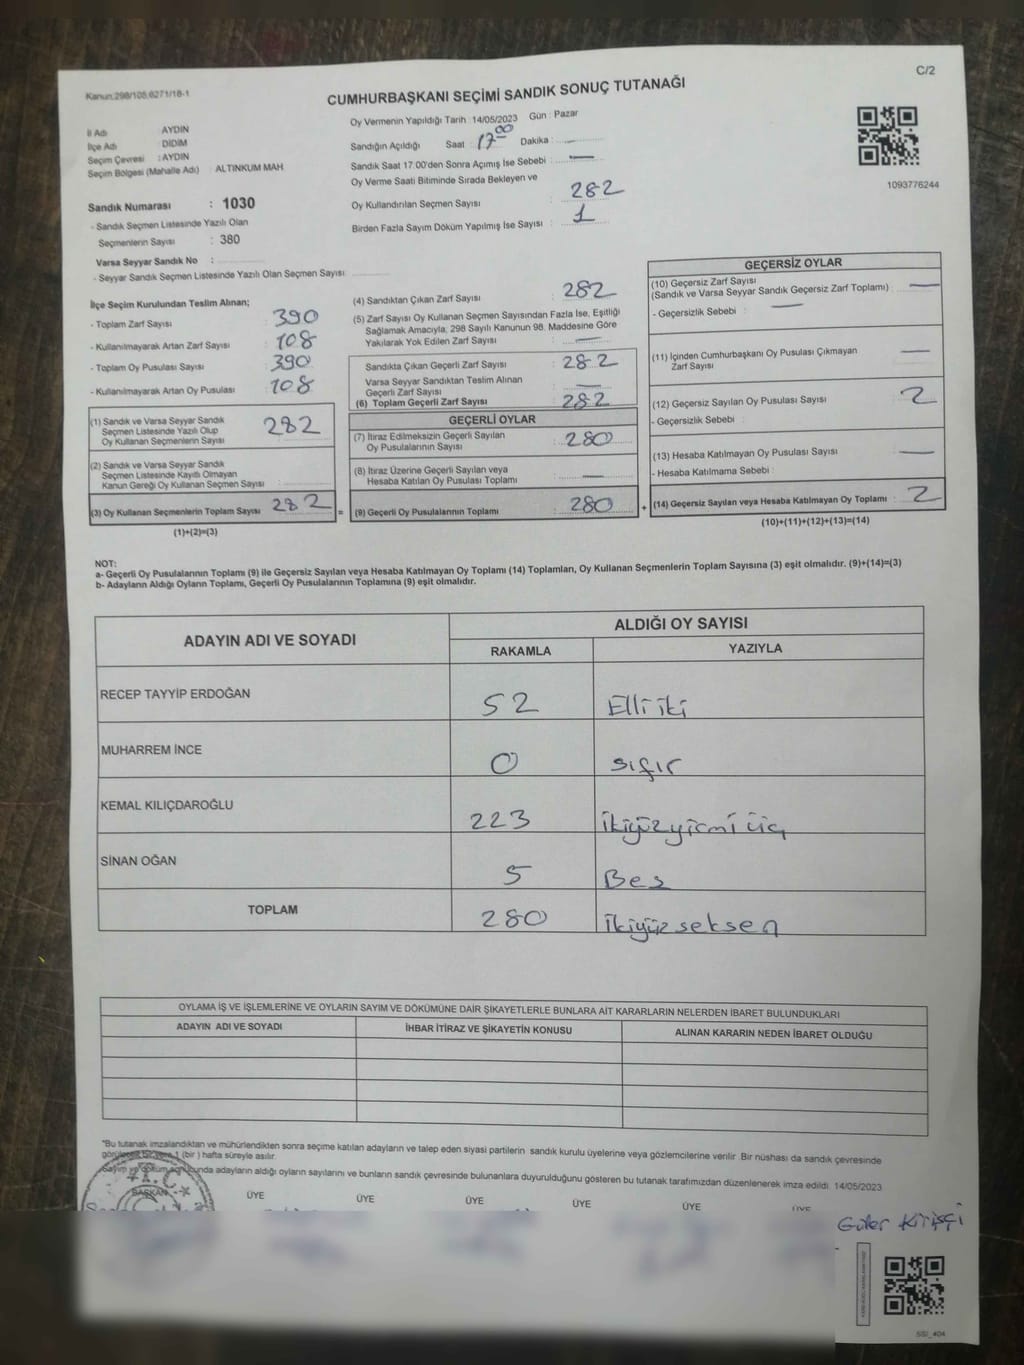 Kanun:298/105,6271/18-1
C/2
CUMHURBAŞKANI SEÇİMİ SANDIK SONUÇ TUTANAĞI
İl Adı : AYDIN
İlçe Adı : DİDİM
Seçim Çevresi : AYDIN
Seçim Bölgesi (Mahalle Adı) : ALTINKUM MAH
Sandık Numarası : 1030
- Sandık Seçmen Listesinde Yazılı Olan
Seçmenlerin Sayısı : 380
Varsa Seyyar Sandık No :
- Seyyar Sandık Seçmen Listesinde Yazılı Olan Seçmen Sayısı:
Oy Vermenin Yapıldığı Tarih : 14/05/2023 Gün : Pazar
Sandığın Açıldığı Saat : 17:00 Dakika : —
Sandık Saat 17:00'den Sonra Açımış İse Sebebi : —
Oy Verme Saati Bitiminde Sırada Bekleyen ve
Oy Kullandırılan Seçmen Sayısı : 282
Birden Fazla Sayım Döküm Yapılmış İse Sayısı : 1
1093776244
İlçe Seçim Kurulundan Teslim Alınan;
- Toplam Zarf Sayısı : 390
- Kullanılmayarak Artan Zarf Sayısı : 108
- Toplam Oy Pusulası Sayısı : 390
- Kullanılmayarak Artan Oy Pusulası : 108
(1) Sandık ve Varsa Seyyar Sandık
Seçmen Listesinde Yazılı Olup
Oy Kullanan Seçmenlerin Sayısı : 282
(2) Sandık ve Varsa Seyyar Sandık
Seçmen Listesinde Kayıtlı Olmayan
Kanun Gereği Oy Kullanan Seçmen Sayısı :
(3) Oy Kullanan Seçmenlerin Toplam Sayısı : 282
(1)+(2)=(3)
(4) Sandıktan Çıkan Zarf Sayısı : 282
(5) Zarf Sayısı Oy Kullanan Seçmen Sayısından Fazla İse, Eşitliği
Sağlamak Amacıyla, 298 Sayılı Kanunun 98. Maddesine Göre
Yakılarak Yok Edilen Zarf Sayısı : —
Sandıkta Çıkan Geçerli Zarf Sayısı : 282
Varsa Seyyar Sandıktan Teslim Alınan
Geçerli Zarf Sayısı : —
(6) Toplam Geçerli Zarf Sayısı : 282
GEÇERLİ OYLAR
(7) İtiraz Edilmeksizin Geçerli Sayılan
Oy Pusulalarının Sayısı : 280
(8) İtiraz Üzerine Geçerli Sayılan veya
Hesaba Katılan Oy Pusulası Toplamı : —
= (9) Geçerli Oy Pusulalarının Toplamı : 280
GEÇERSİZ OYLAR
(10) Geçersiz Zarf Sayısı
(Sandık ve Varsa Seyyar Sandık Geçersiz Zarf Toplamı) : —
- Geçersizlik Sebebi : —
(11) İçinden Cumhurbaşkanı Oy Pusulası Çıkmayan
Zarf Sayısı : —
(12) Geçersiz Sayılan Oy Pusulası Sayısı : 2
- Geçersizlik Sebebi :
(13) Hesaba Katılmayan Oy Pusulası Sayısı : —
- Hesaba Katılmama Sebebi :
+ (14) Geçersiz Sayılan veya Hesaba Katılmayan Oy Toplamı : 2
(10)+(11)+(12)+(13)=(14)
NOT:
a- Geçerli Oy Pusulalarının Toplamı (9) ile Geçersiz Sayılan veya Hesaba Katılmayan Oy Toplamı (14) Toplamları, Oy Kullanan Seçmenlerin Toplam Sayısına (3) eşit olmalıdır. (9)+(14)=(3)
b- Adayların Aldığı Oyların Toplamı, Geçerli Oy Pusulalarının Toplamına (9) eşit olmalıdır.
ADAYIN ADI VE SOYADI
ALDIĞI OY SAYISI
RAKAMLA YAZIYLA
RECEP TAYYİP ERDOĞAN 52 Elli iki
MUHARREM İNCE 0 sıfır
KEMAL KILIÇDAROĞLU 223 ikiyüzyirmi üç
SİNAN OĞAN 5 Beş
TOPLAM 280 ikiyüz seksen
OYLAMA İŞ VE İŞLEMLERİNE VE OYLARIN SAYIM VE DÖKÜMÜNE DAİR ŞİKAYETLERLE BUNLARA AİT KARARLARIN NELERDEN İBARET BULUNDUKLARI
ADAYIN ADI VE SOYADI İHBAR İTİRAZ VE ŞİKAYETİN KONUSU ALINAN KARARIN NEDEN İBARET OLDUĞU
*Bu tutanak imzalandıktan ve mühürlendikten sonra seçime katılan adayların ve talep eden siyasi partilerin sandık kurulu üyelerine veya gözlemcilerine verilir. Bir nüshası da sandık çevresinde
1 (bir) hafta süreyle asılır.
Sayım ve döküm sonucunda adayların aldığı oyların sayılarını ve bunların sandık çevresinde bulunanlara duyurulduğunu gösteren bu tutanak tarafımızdan düzenlenerek imza edildi. 14/05/2023
T.C.
BAŞKAN ÜYE ÜYE ÜYE ÜYE ÜYE ÜYE
Güler Kirişçi
SSI_404